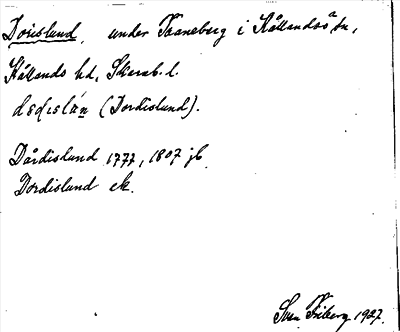 Dorislund, under Traneberg i Kållandsö sn,
Kållands hd, Skarab. l.
(Dordislund).
Dårdislund 1777, 1807 jb
Dordislund ek.
Sven Friberg 1927.